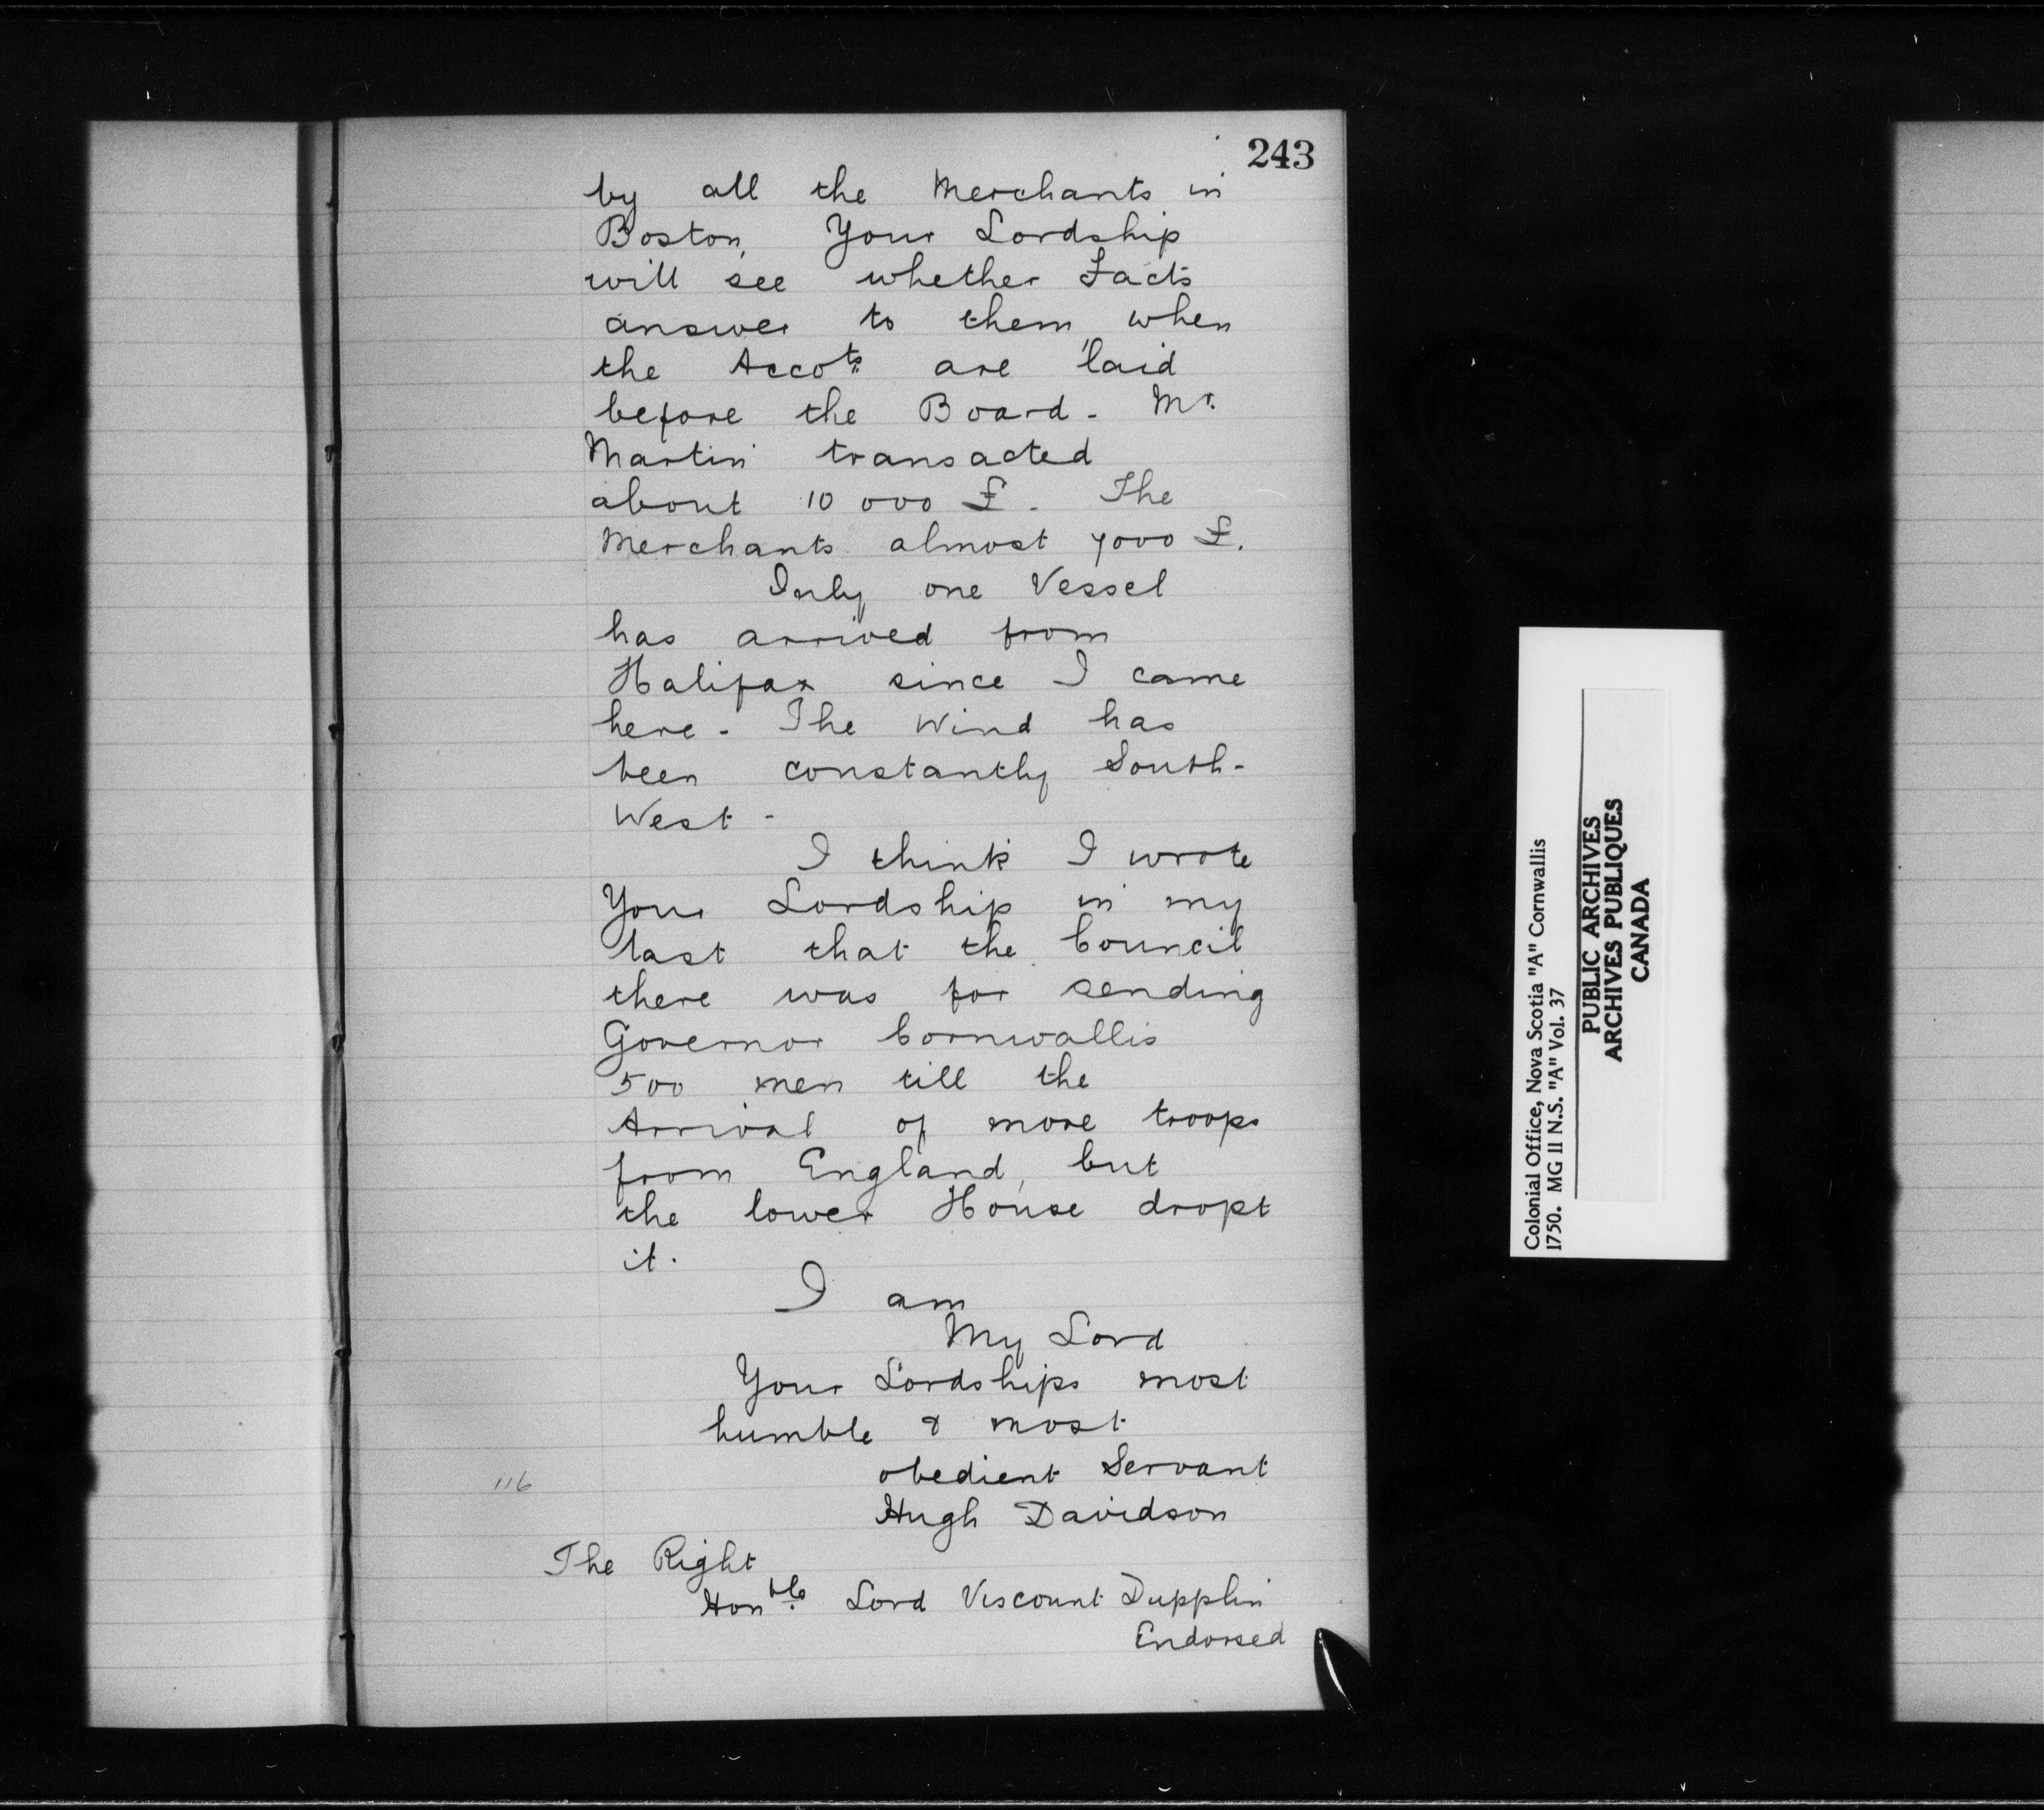 243
by all the Merchants in
Boston, Your Lordship
will see whether Facts
answer to them, when
the Acco.ts are laid
before the Board - Mr.
Martin transacted
about 10 000 £. The
Merchants almost 7000 £.
Only one Vessel
has arrived from
Halifax since I came
here - The Wind has
been constantly South-
West -
I think I wrote
Your Lordship in my
last that the Council
there was for sending
Governor Cornwallis
500 men till the
Arrival of more troops
from England, but
the lower House dropt
it.
I am
My Lord
Your Lordships most
humble & most
obedient Servant
Hugh Davidson
116
The Right
Hon.ble Lord Viscount Dupplin
Endorsed
Colonial Office, Nova Scotia "A" Cornwallis
1750. MG II N.S. "A" Vol. 37
PUBLIC ARCHIVES
ARCHIVES PUBLIQUES
CANADA